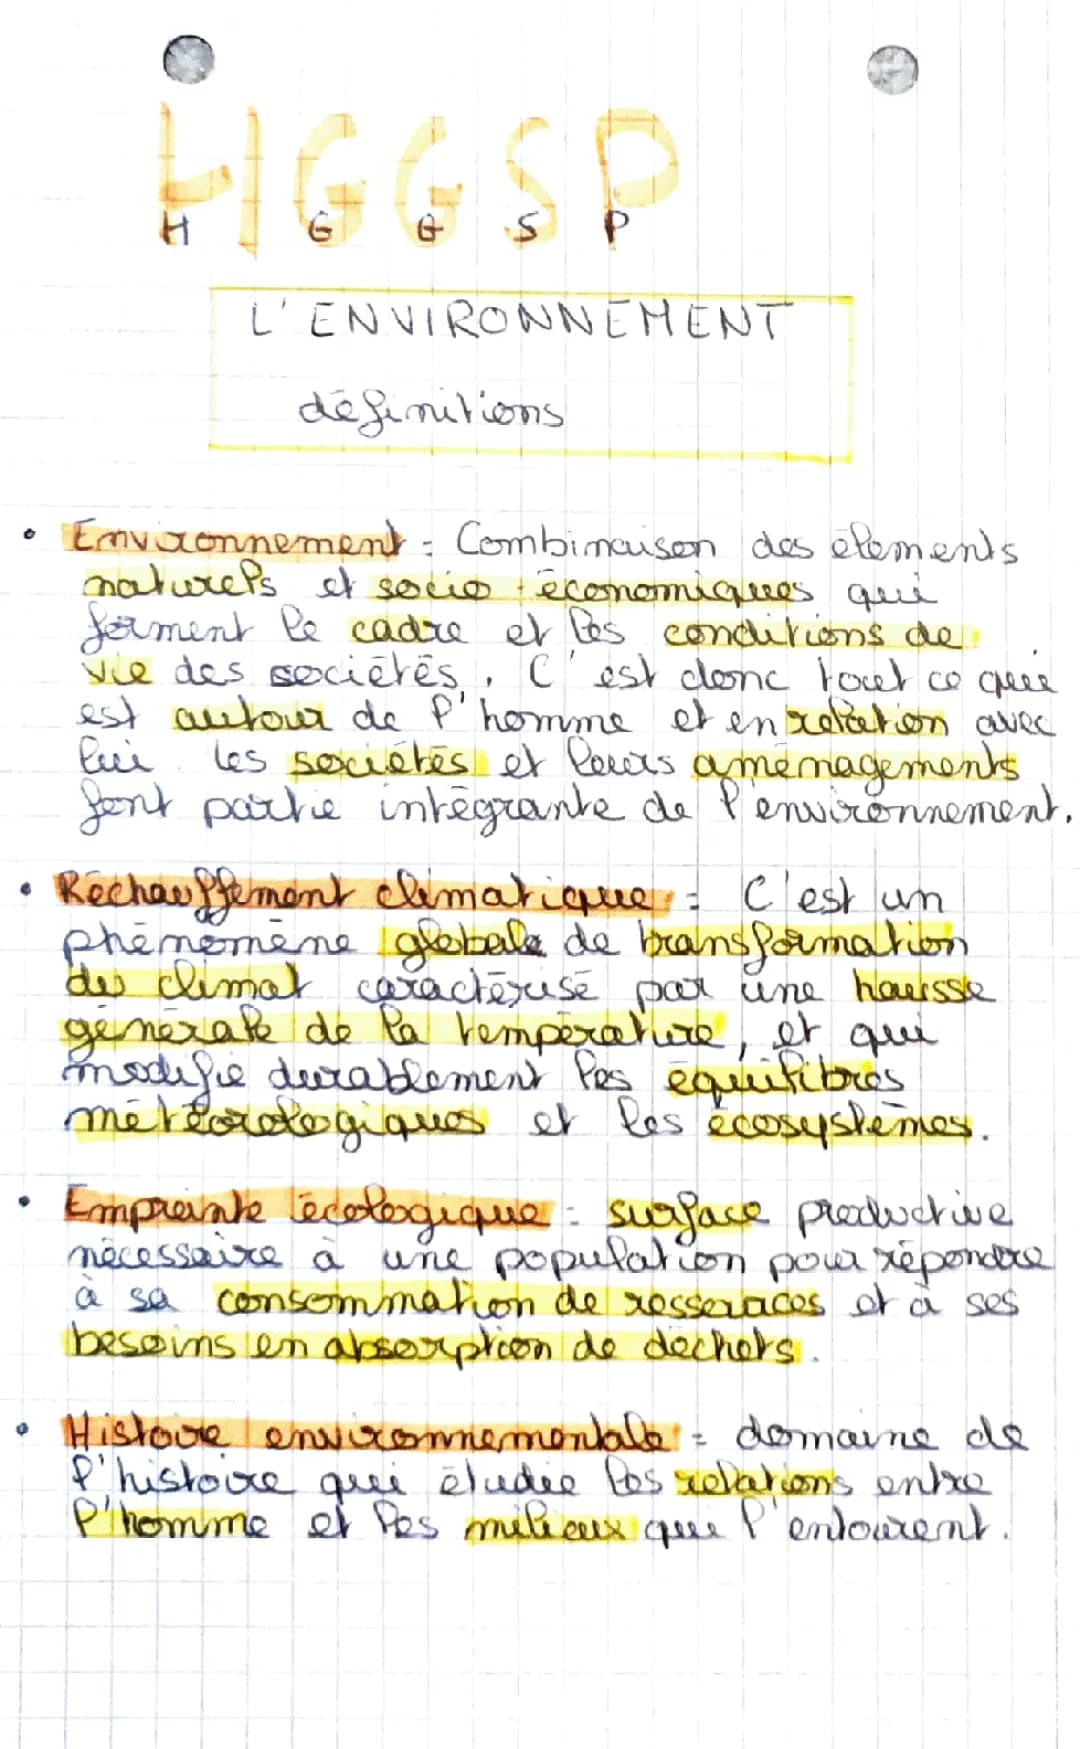 HGGSP
H G G S P
L'ENVIRONNEMENT
définitions
• Environnement : Combinaison des éléments
naturels et socio-économiques qui
forment le cadre et les conditions de
vie des sociétés. C'est donc tout ce qui
est autour de l'homme et en relation avec
lui. Les sociétés et leurs aménagements
font partie intégrante de l'environnement.
• Réchauffement climatique : C'est un
phénomène globale de transformation
du climat caractérisé par une hausse
générale de la température, et qui
modifie durablement les équilibres
météorologiques et les écosystèmes.
• Empreinte écologique : surface productive
nécessaire à une population pour répondre
à sa consommation de ressources et à ses
besoins en absorption de déchets.
• Histoire environnementale : domaine de
l'histoire qui étudie les relations entre
l'homme et les milieux qui l'entourent.